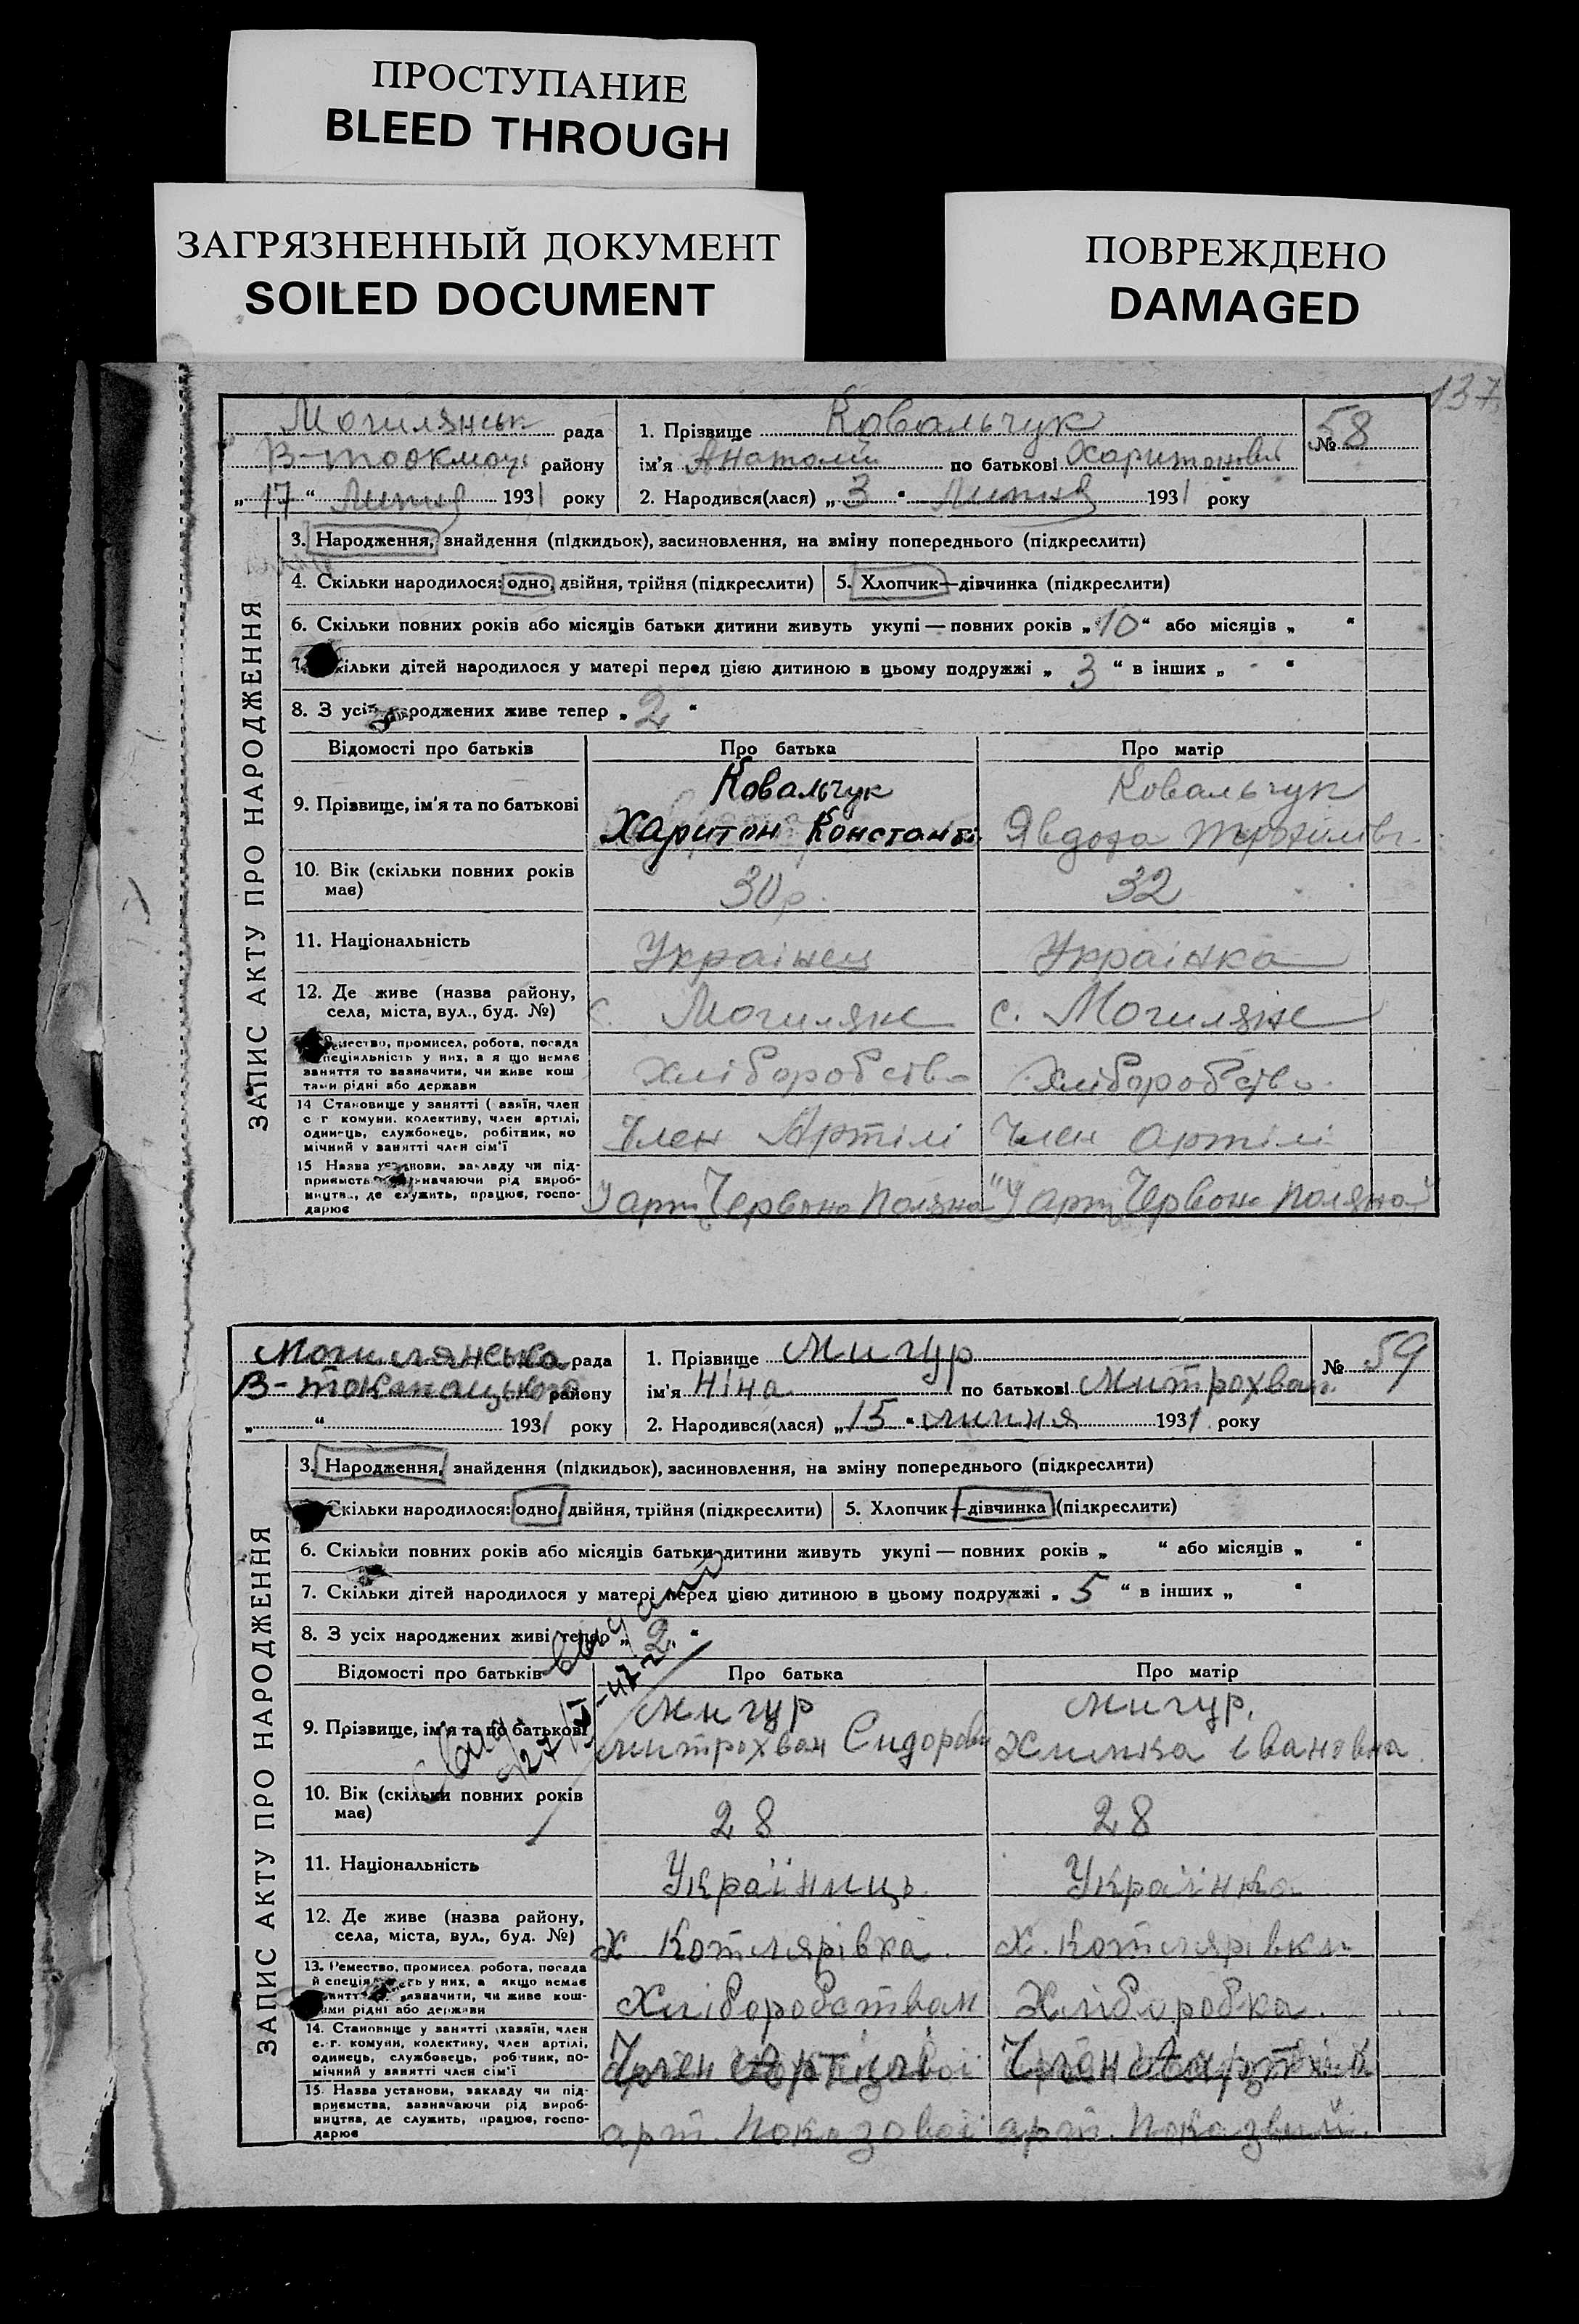 ПРОСТУПАНИЕ
BLEED THROUGH
ЗАГРЯЗНЕННЫЙ ДОКУМЕНТ
SOILED DOCUMENT
ПОВРЕЖДЕНО
DAMAGED
137
ЗАПИС АКТУ ПРО НАРОДЖЕННЯ
Могилянськ рада
В-Тоокмоць району
„17“ Липня 1931 року
1. Прізвище Ковальчук
ім'я Анатолій по батькові Харитонович
2. Народився(лася) „3“ Липня 1931 року
№ 58
3. Народження, знайдення (підкидьок), засиновлення, на зміну попереднього (підкреслити)
4. Скільки народилося: одно, двійня, трійня (підкреслити) 5. Хлопчик—дівчинка (підкреслити)
6. Скільки повних років або місяців батьки дитини живуть укупі — повних років „10“ або місяців „ “
7. Скільки дітей народилося у матері перед цією дитиною в цьому подружжі „3“ в інших „-“
8. З усіх народжених живе тепер „2“
Відомості про батьків Про батька Про матір
9. Прізвище, ім'я та по батькові
Ковальчук Ковальчук
Харитон Констант Явдоха
10. Вік (скільки повних років має) 30р. 32
11. Національність Украінец Украінка
12. Де живе (назва району, села, міста, вул., буд. №) с. Могиляне с. Могиляне
ремество, промисел, робота, посада
спеціяльність у них, а я що немає
заняття то зазначити, чи живе кош
тами рідні або держави
хліборобство хліборобство
14 Становище у занятті (хазяїн, член
с г комуни. колективу, член артілі,
одинець, службовець, робітник, по
мічний у занятті член сім'ї
Член Артілі Член артілі
15 Назва установи, закладу чи під-
приємства зазначаючи рід вироб-
ництва, де служить, працює, госпо-
дарює
У арт Червона Поляна "У арт Червона Поляна"
ЗАПИС АКТУ ПРО НАРОДЖЕННЯ
Могилянська рада
В-Токмацького району
„ “ 1931 року
1. Прізвище Мигур
ім'я Ніна по батькові Митрохван.
2. Народився(лася) „15“ липня 1931 року
№ 59
3. Народження, знайдення (підкидьок), засиновлення, на зміну попереднього (підкреслити)
Скільки народилося: одно, двійня, трійня (підкреслити) 5. Хлопчик—дівчинка (підкреслити)
6. Скільки повних років або місяців батьки дитини живуть укупі — повних років „ “ або місяців „ “
7. Скільки дітей народилося у матері перед цією дитиною в цьому подружжі „5“ в інших „ “
8. З усіх народжених живі тепер „2“
Відомості про батьків Про батька Про матір
9. Прізвище, ім'я та по батькові
Мигур Мигур,
Митрохван Сидорови Химка Івановна
10. Вік (скільки повних років має) 28 28
11. Національність Україниць Українка
12. Де живе (назва району, села, міста, вул., буд. №) х. Котлярівка х. Котлярівка
13. Ремество, промисел, робота, посада
й спеціяльність у них, а якщо немає
заняття то зазначити, чи живе кош-
тами рідні або держави
Хліборобством Хліборобка.
14. Становище у занятті (хазяїн, член
с. г. комуни, колективу, член артілі,
одинець, службовець, робітник, по-
мічний у занятті член сім'ї
Член Артілі Член Артілі
15. Назва установи, закладу чи під-
приємства, зазначаючи рід вироб-
ництва, де служить, працює, госпо-
дарює
арт. Показової арт. Показвий.